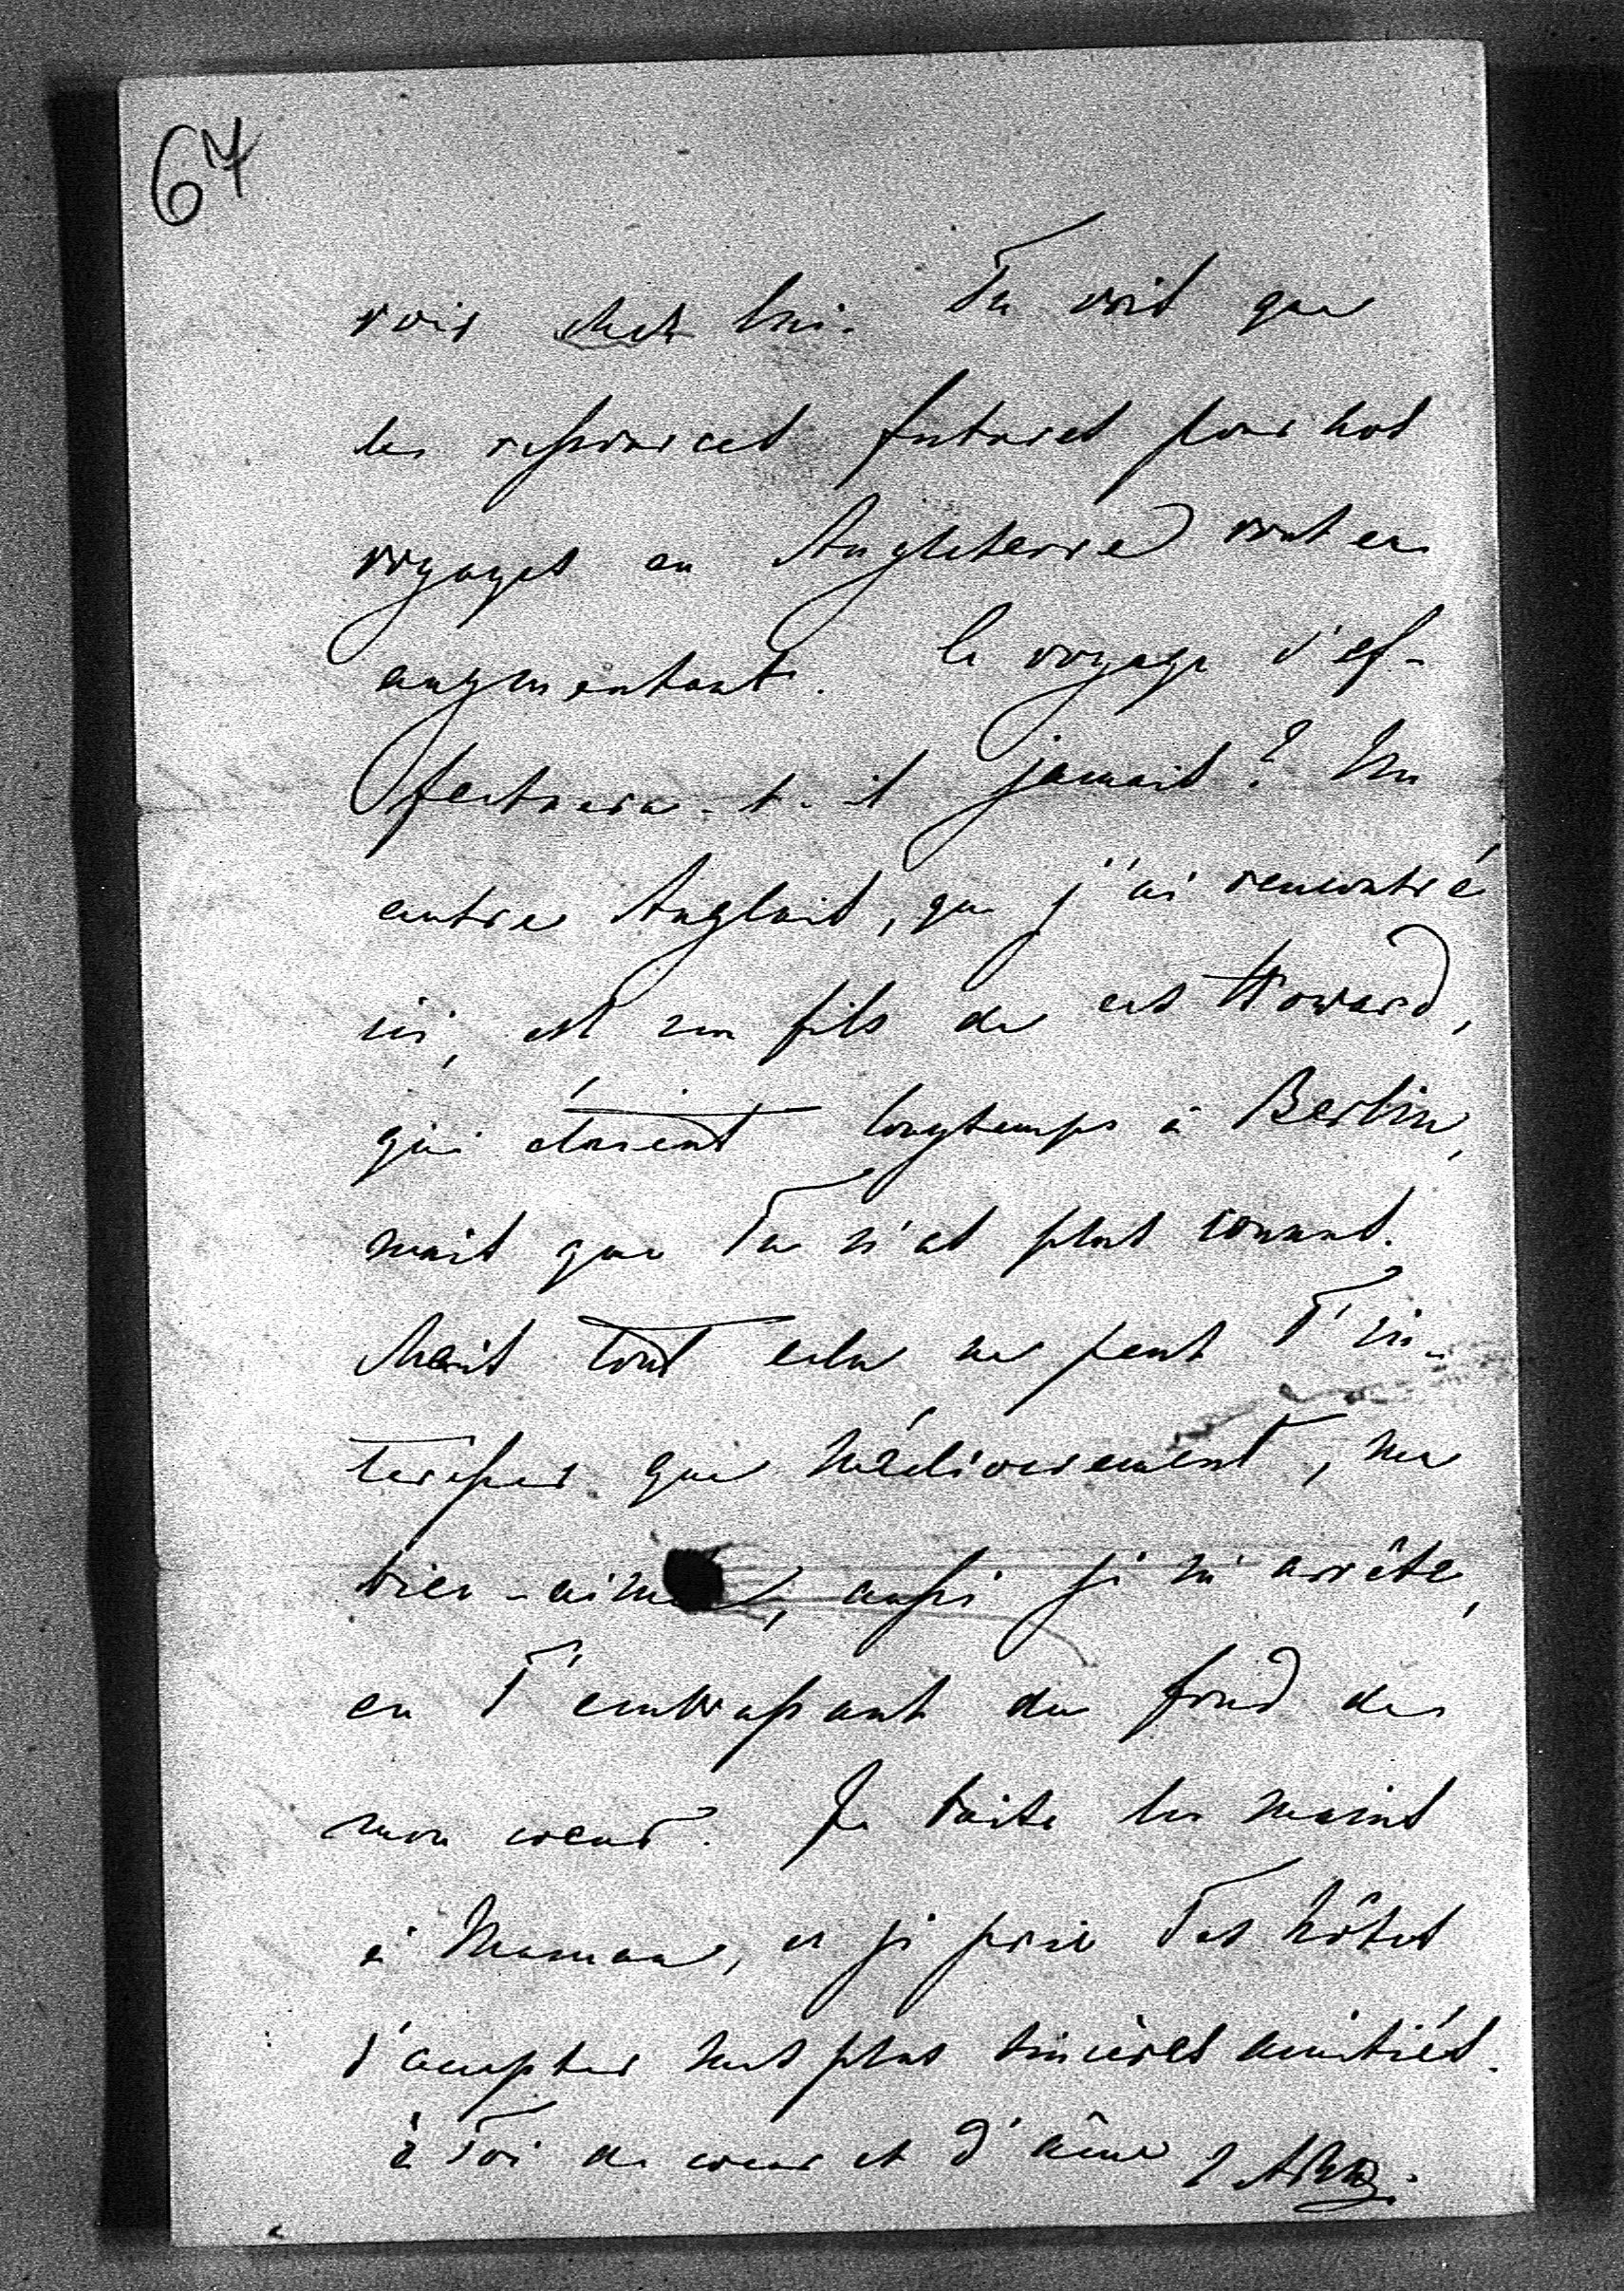 67
voir chez lui. Tu vois que
les ressources futures pour nos
voyages en Angleterre vont en
augmentant. Le voyage s'ef-
fectuera-t-il jamais? Un
autre Anglais, que j'ai rencontré
ici, est un fils de ces Howard,
qui étaient longtemps à Berlin,
mais que Tu n'as plus connus.
Mais tout cela ne peut T'in-
teresser que médiocrement, ma
bien-aimée, aussi je m'arrête,
en T'embrassant du fond de
mon coeur. Je baise les mains
à Maman, et je prie Tes hôtes
d'accepter mes plus sincères amitiés.
à Toi de coeur et d'âme